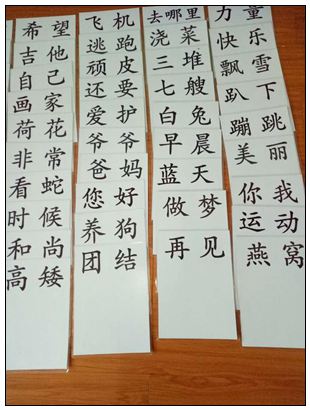 希望
吉他
自己
画家
荷花
非常
看蛇
时候
和尚
高矮
飞机
逃跑
顽皮
还要
爱护
爷爷
爸妈
您好
养狗
团结
去哪里
浇菜
三堆
七艘
白兔
早晨
蓝天
做梦
再见
童
快乐
飘雪
趴下
蹦跳
美丽
你我
运动
燕窝